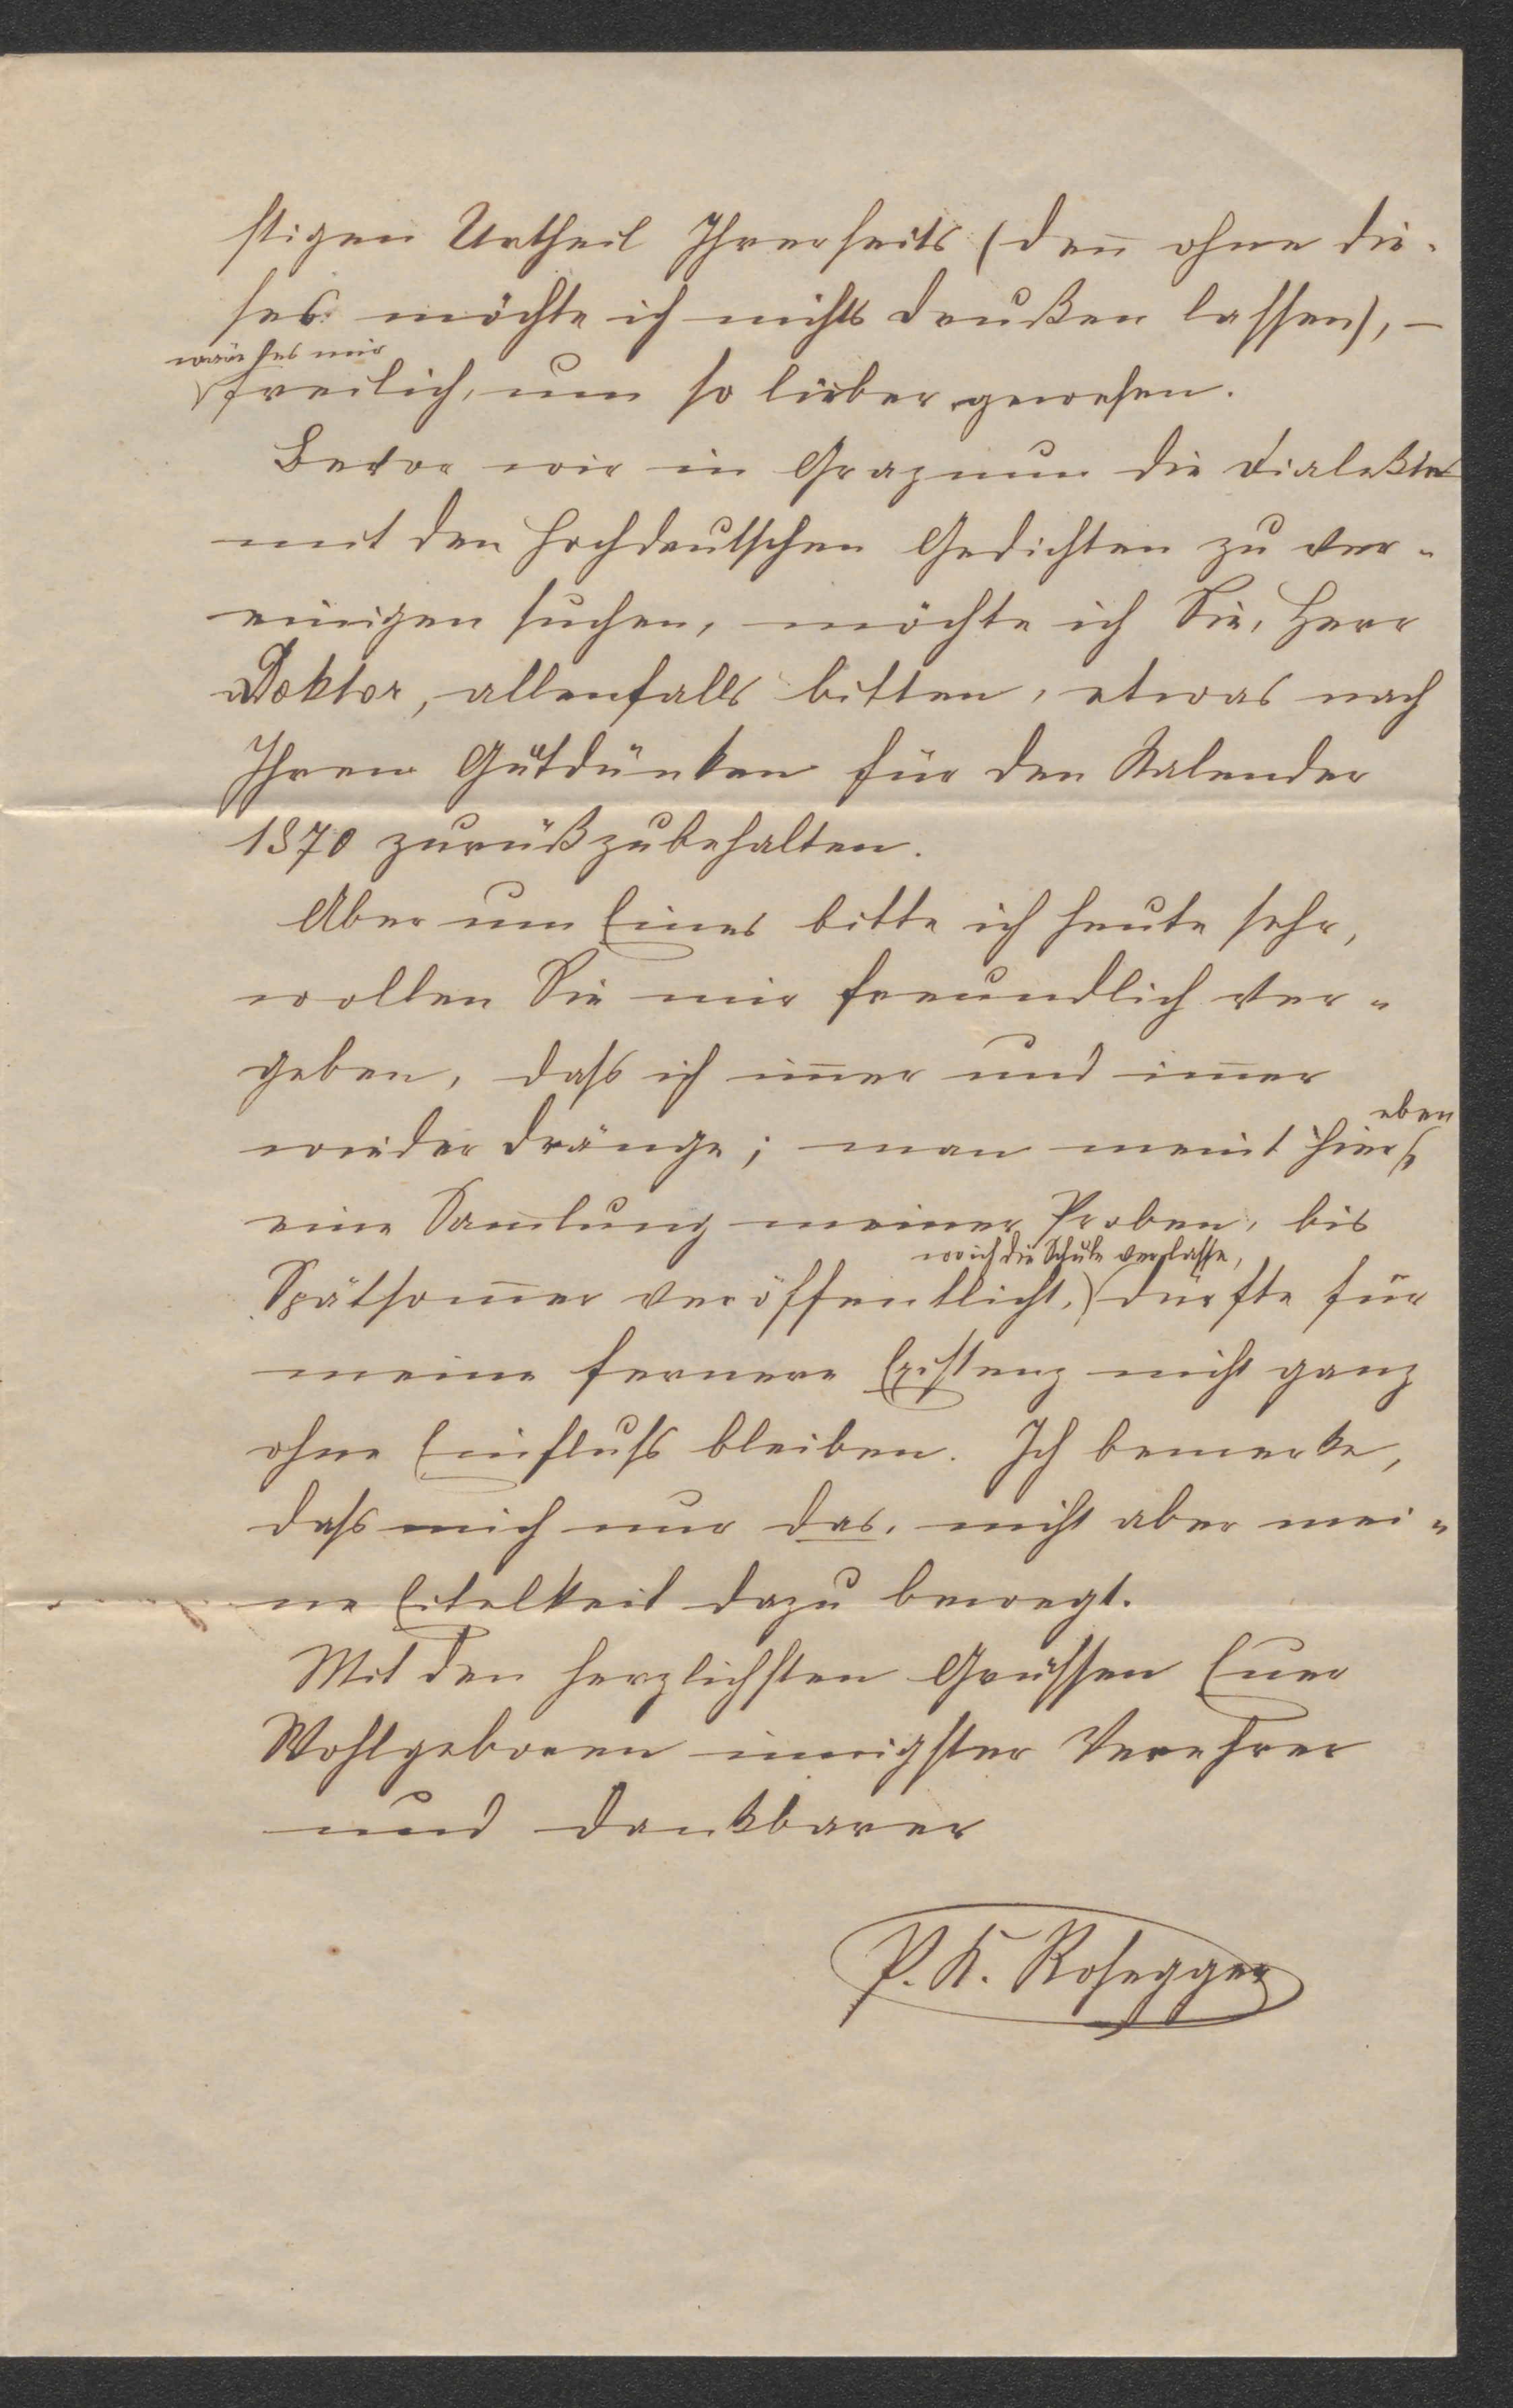 stigen Urtheil Ihrerseits (den̄ ohne die-
ses möchte ich nichts drucken lassen), –
wäre es mir
freilich, um so lieber gewesen.
Bevor wir in Graz nun die Dialekten
mit den hochdeutschen Gedichten zu ver-
einigen suchen, möchte ich Sie, Herr
Doktor, allenfalls bitten, etwas nach
Ihren Gutdünken für den Kalender
1870 zurückzubehalten.
Aber um Eines bitte ich heute sehr,
wollen Sie mir freundlich ver-
geben, dass ich im̄er und im̄er
wieder dränge; man meint hier
eben
eine Sam̄lung meiner Proben, bis
wo ich die Schule verlasse,
Spätsom̄er veröffentlicht, dürfte für
meine fernere Existenz nicht ganz
ohne Einfluss bleiben. Ich bemerke,
dass mich nur das, nicht aber mei-
ne Eitelkeit dazu bewegt.
Mit den herzlichsten Grüssen Euer
Wohlgeboren innigster Verehrer
und dankbarer
P. K. Rosegger